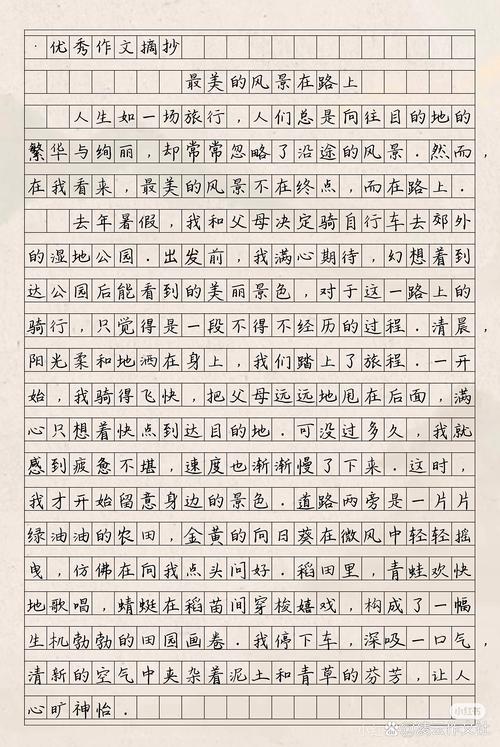 ·优秀作文摘抄
最美的风景在路上
人生如一场旅行，人们总是向往目的地的
繁华与绚丽，却常常忽略了沿途的风景．然而，
在我看来，最美的风景不在终点，而在路上．
去年暑假，我和父母决定骑自行车去郊外
的湿地公园．出发前，我满心期待，幻想着到
达公园后能看到的美丽景色，对于这一路上的
骑行，只觉得是一段不得不经历的过程．清晨，
阳光柔和地洒在身上，我们踏上了旅程．一开
始，我骑得飞快，把父母远远地甩在后面，满
心只想着快点到达目的地．可没过多久，我就
感到疲惫不堪，速度也渐渐慢了下来．这时，
我才开始留意身边的景色．道路两旁是一片片
绿油油的农田，金黄的向日葵在微风中轻轻摇
曳，仿佛在向我点头问好．稻田里，青蛙欢快
地歌唱，蜻蜓在稻苗间穿梭嬉戏，构成了一幅
生机勃勃的田园画卷．我停下车，深吸一口气，
清新的空气中夹杂着泥土和青草的芬芳，让人
心旷神怡．
小红书